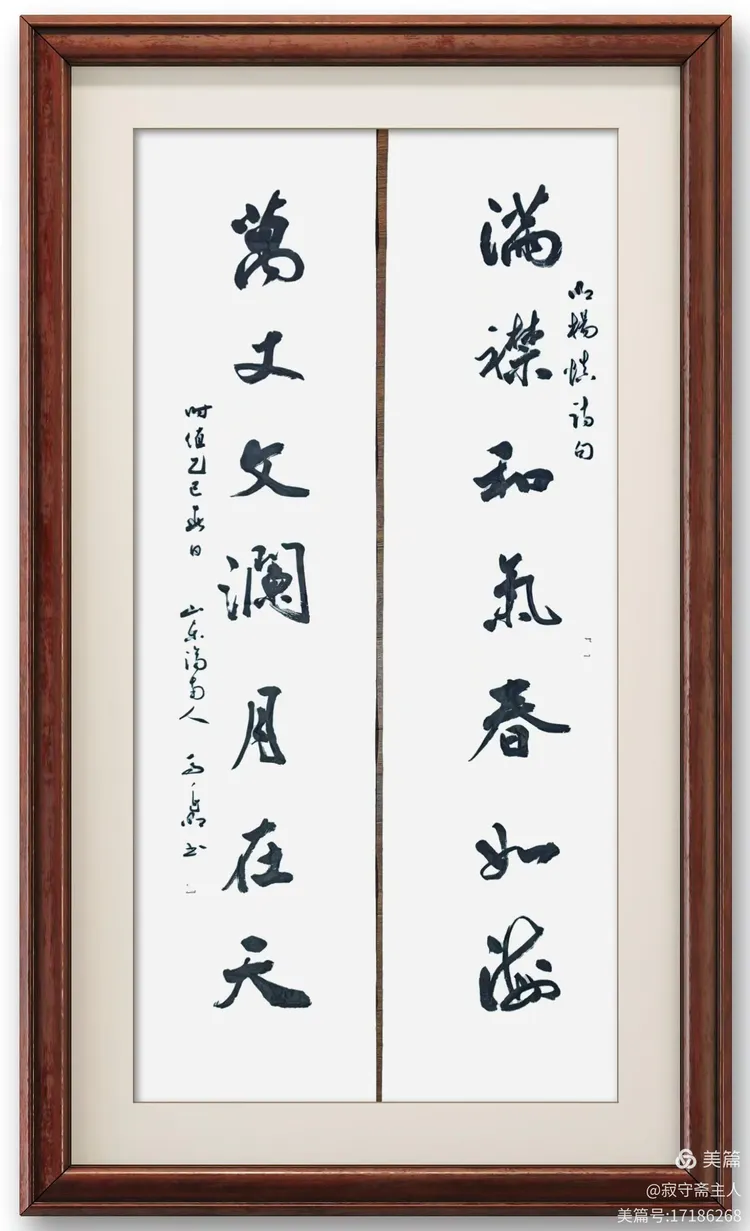 滿襟和氣春如海
明楊慎詩句
萬丈文瀾月在天
时值乙巳日 山东济南人 书
美篇
@寂守斋主人
美篇号:17186268